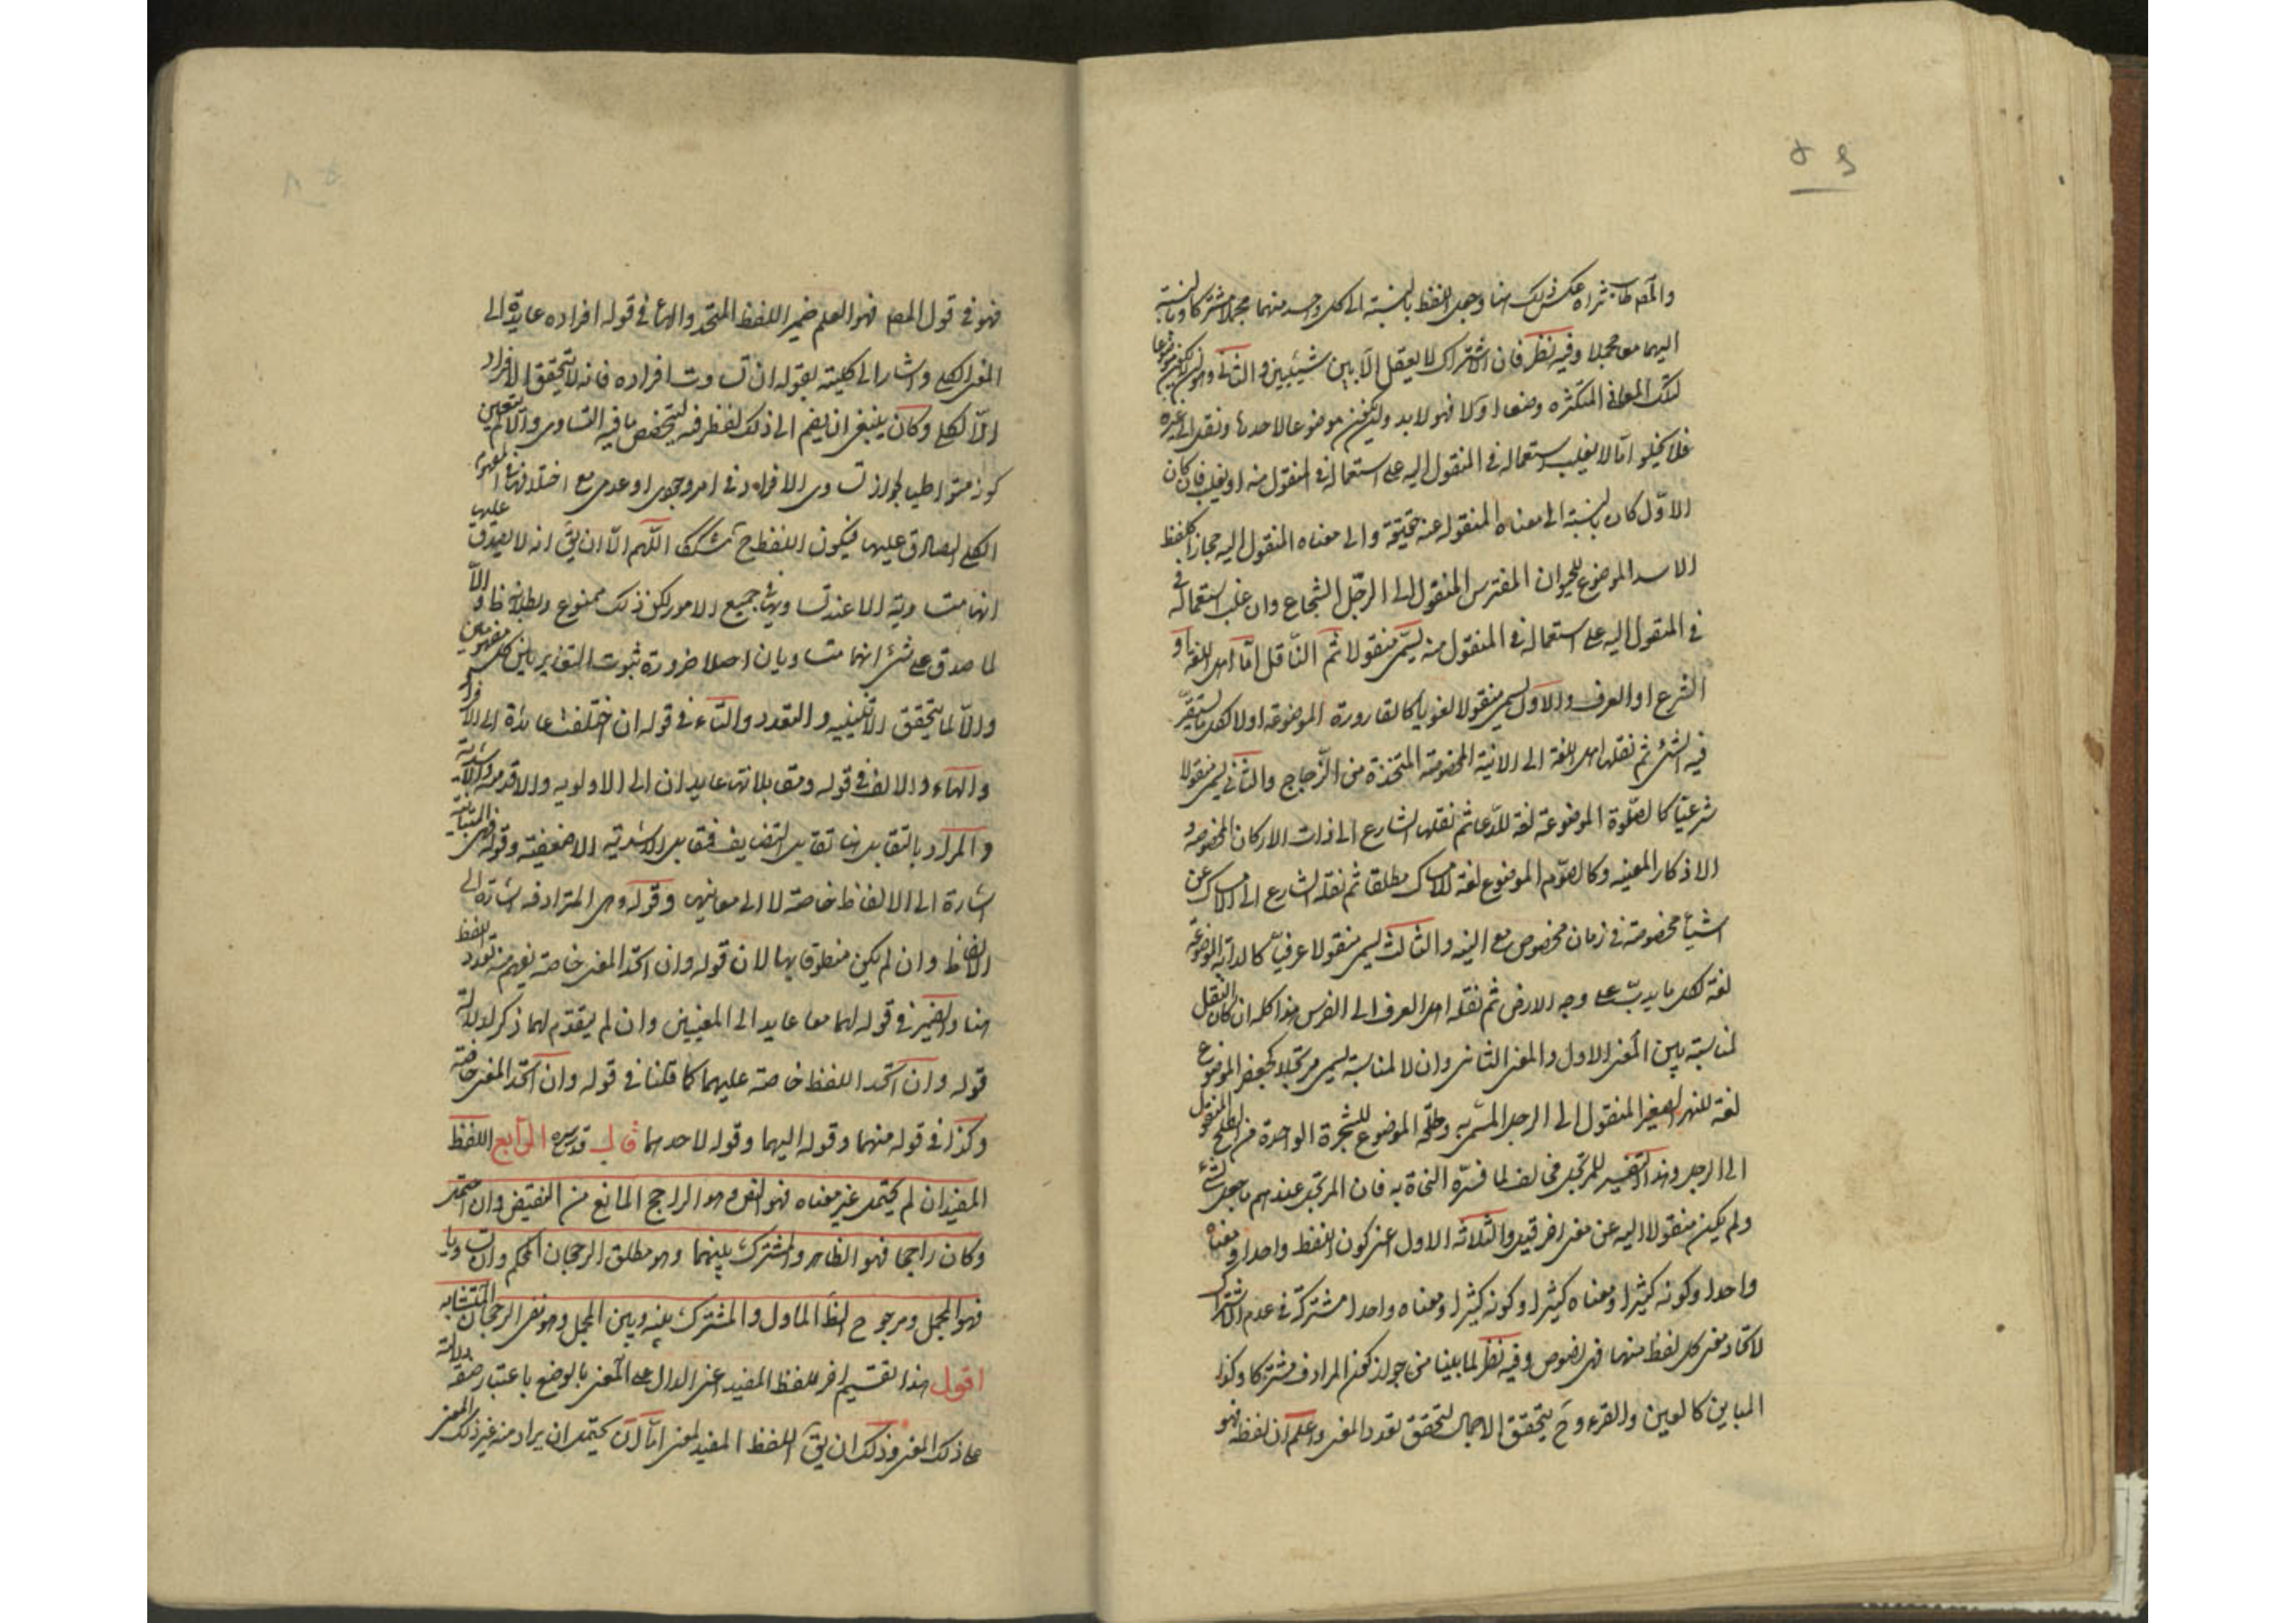 والمصنف طاب ثراه عكس ذلك هنا وجعل اللفظ بالنسبة الى كل واحد منهما مجملا مشتركا وبالنسبة
اليهما معا مجملا وفيه نظر فان الاشتراك لا يعقل الا بين شيئيين والثانى وهو ان لا يكون موضوعا
لتلك المعانى المتكثره وضعا اولا فهو لا بد وان يكون موضوعا لاحدها ونقل الى غيره
فلا يخلو اما لا يغلب استعماله فى المنقول اليه على استعماله فى المنقول منه او يغلب فان كان
الاول كان بالنسبة الى معناه المنقول عنه حقيقة والى معناه المنقول اليه مجازا كلفظ
الاسد الموضوع للحيوان المفترس المنقول الى الرجل الشجاع وان غلب استعماله فى
فى المنقول اليه على استعماله فى المنقول منه يسمى منقولا ثم الناقل اما اهل اللغة او
الشرع او العرف والاول يسمى منقولا لغويا كالقارورة الموضوعة اولا لكل ما يستقر
فيه الشئ ثم نقلها اهل اللغة الى الانية المخصوصة المتخذة من الزجاج والثانى يسمى منقولا
شرعيا كالصلوة الموضوعة لغة للدعا ثم نقلها الشارع الى ذات الاركان المخصوصه و
الاذكار المعينه وكالصوم الموضوع لغة للامساك مطلقا ثم نقله الشارع الى الامساك عن
اشيأ مخصوصة فى زمان مخصوص مع النية والثالث يسمى منقولا عرفيا كالدابة الموضوعة
لغة لكل ما يدب على وجه الارض ثم نقله اهل العرف الى الفرس هذا كله ان كان النقل
لمناسبة بين المعنى الاول والمعنى الثانى وان لا لمناسبة يسمى مرتجلا كجعفر الموضوع
لغة للنهر الصغير المنقول الى الرجل المسمى به وطلحة الموضوع للشجرة الواحدة من الطلح المنقول
الى الرجل وهذا التفسير للمرتجل مخالف لما فسره النحاة به فان المرتجل عندهم ما جعل لشئ
ولم يكن منقولا اليه عن معنى اخر قيل والثلاثه الاول اعنى كون اللفظ واحدا ومعناه
واحدا وكونه كثيرا ومعناه كثيرا وكونه كثيرا ومعناه واحدا مشتركة فى عدم الاشتراك
لاتحاد معنى كل لفظ منهما فهى نصوص وفيه نظر لما بينا من جواز كون المرادف مشتركا وكذا
المباين كالعين والقرء وح يتحقق الاجمال لتحقق تعدد المعنى واعلم ان لفظه فهو
فهو فى قول المصنف فهو العلم ضمير اللفظ المتحد والهأ فى قوله افراده عايدة الى
المعنى الكلى واشار الى كليته بقوله ان تساوت افراده فانه لا يتحقق الافراد
الا لكلى وكان ينبغى ان يضم الى ذلك لفظ فيه ليتخصص ما فيه التساوى والا لم يتعين
كونه متواطيا لجواز تساوى الافراد فى امر وجودى او عدمى مع اختلافها فى المفهوم
الكلى الصادق عليها فيكون اللفظ ح مشككا اللهم الا ان يق انه لا يصدق عليها
انها متساوية الا عند تساويها فى جميع الامور لكن ذلك ممنوع وبطلانه ظ والا
لما صدق على شئ انهما متساويان اصلا ضرورة ثبوت التغاير بين كل مفهومين
والا لما يتحقق الاثنينيه والتعدد والتاء فى قوله ان اختلفت عائدة الى الافراد
والهاء والالف فى قوله ومقابلاتها عايدان الى الاولويه والاقدميه والاشدية
والمراد بالتقابل هنا تقابل التضايف فتقابل الاشدية الاضعفية وقوله فهى المتباينة
اشارة الى الالفاظ خاصة لا الى معانيها وقوله وهى المترادفه اشارة الى
الالفاظ وان لم يكن منطوقا بها لان قوله وان اتحد المعنى خاصة يفهم منه تعدد اللفظ
هنا والضمير فى قوله لهما معا عايد الى المعنيين وان لم يتقدم لهما ذكر لدلالة
قوله وان اتحد اللفظ خاصة عليهما كما قلنا فى قوله وان اتحد المعنى خاصة
وكذا فى قوله منهما وقوله اليهما وقوله لاحدهما قال قدس سره الرابع اللفظ
المفيد ان لم يحتمل غير معناه فهو النص وهو الراجح المانع من النقيض وان احتمل
وكان راجحا فهو الظاهر والمشترك بينهما وهو مطلق الرجحان المحكم وان تساويا
فهو المجمل ومرجوح الظ الماول والمشترك بينه وبين المجمل وهو نفى الرجحان المتشابه
اقول هذا تقسيم اخر للفظ المفيد اعنى الدال على المعنى بالوضع باعتبار صفة دلالته
على ذلك المعنى وذلك ان يق اللفظ المفيد لمعنى اما ان يحتمل ان يراد منه غير ذلك المعنى